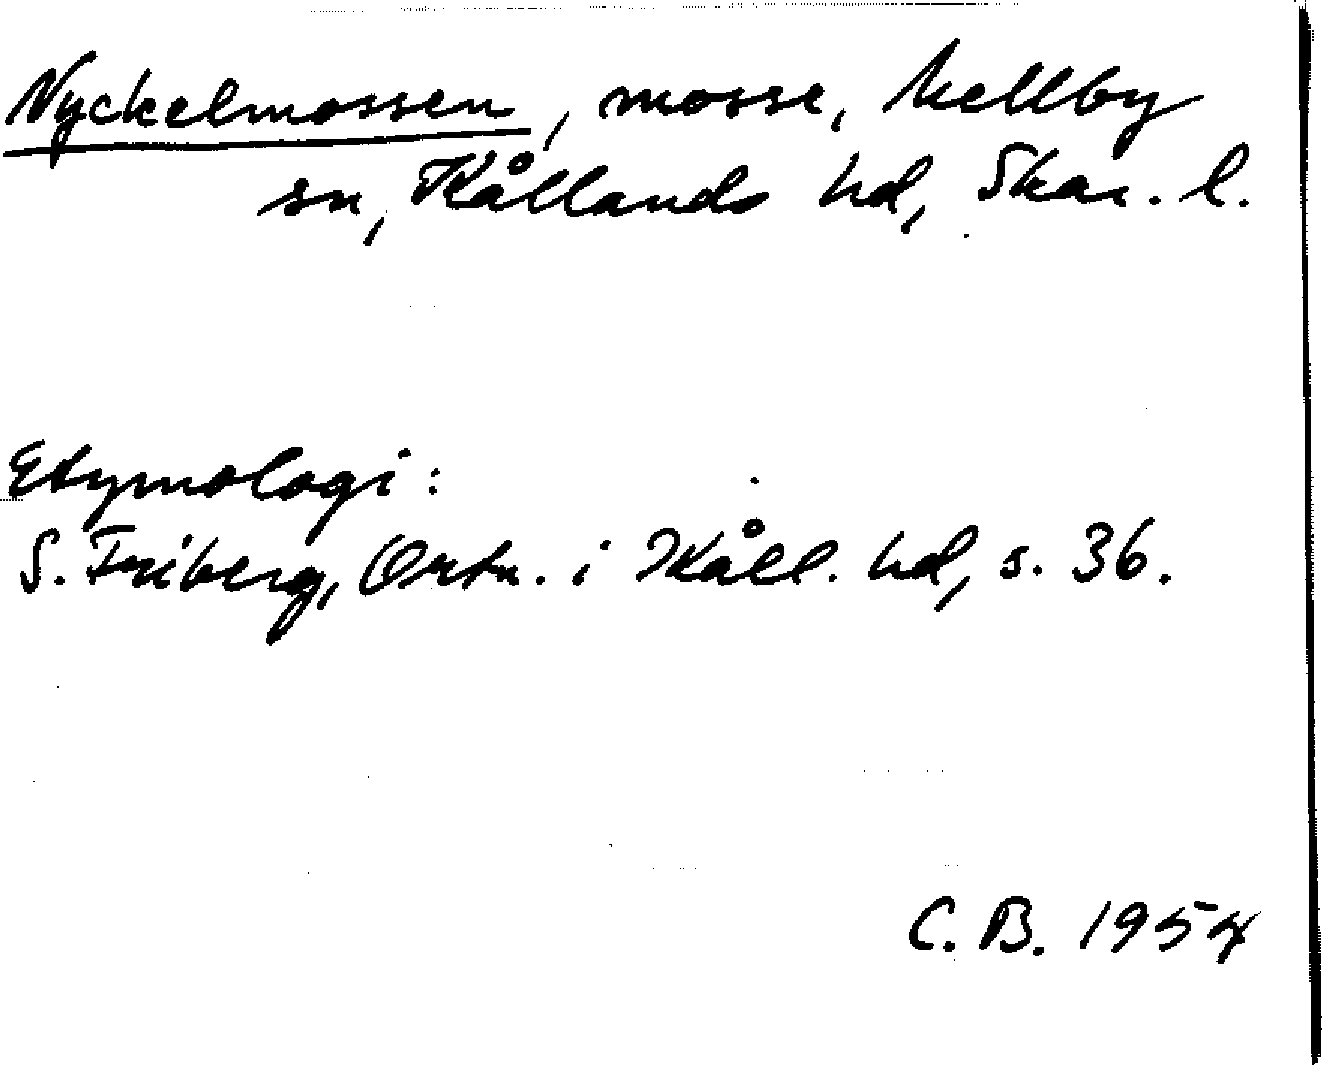 Nyckelmossen, mosse, Mellby
sn, Kållands hd, Skar. l.
Etymologi:
S. Friberg, Ortn. i Kåll. hd, s. 36.
C. B. 1954